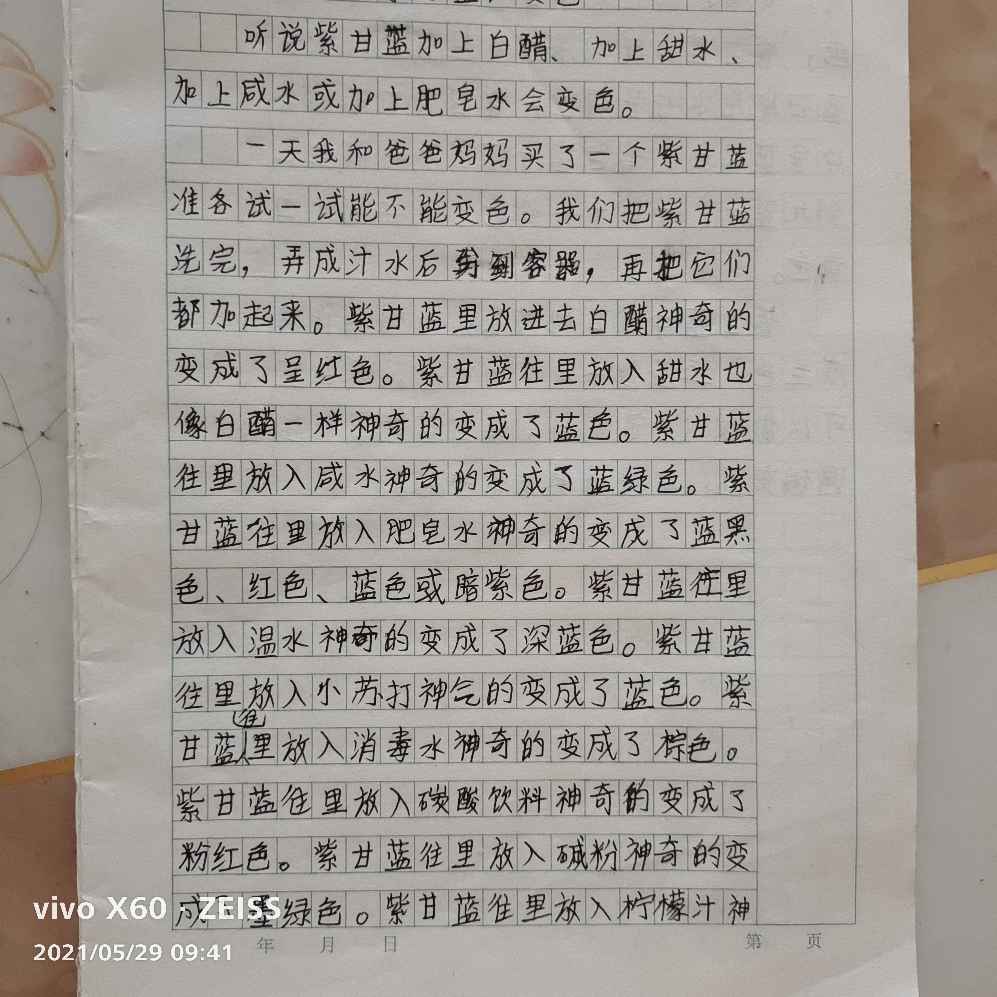 听说紫甘蓝加上白醋、加上甜水、
加上咸水或加上肥皂水会变色。
一天我和爸爸妈妈买了一个紫甘蓝
准备试一试能不能变色。我们把紫甘蓝
洗完，弄成汁水后剪到容器，再把它们
都加起来。紫甘蓝里放进去白醋神奇的
变成了呈红色。紫甘蓝往里放入甜水也
像白醋一样神奇的变成了蓝色。紫甘蓝
往里放入咸水神奇的变成了蓝绿色。紫
甘蓝往里放入肥皂水神奇的变成了蓝黑
色、红色、蓝色或暗紫色。紫甘蓝往里
放入温水神奇的变成了深蓝色。紫甘蓝
往里放入小苏打神气的变成了蓝色。紫
甘蓝往里放入消毒水神奇的变成了棕色。
紫甘蓝往里放入碳酸饮料神奇的变成了
粉红色。紫甘蓝往里放入碱粉神奇的变
成了墨绿色。紫甘蓝往里放入柠檬汁神
年 月 日
第 页
vivo X60 | ZEISS
2021/05/29 09:41